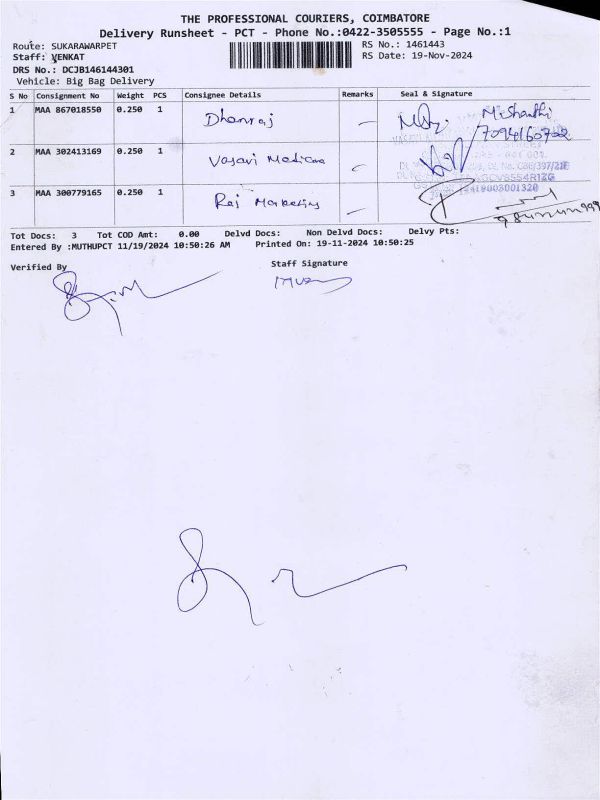 THE PROFESSIONAL COURIERS, COIMBATORE
Delivery Runsheet - PCT - Phone No.:0422-3505555 - Page No.:1
Route: SUKARAWARPET
RS No.: 1461443
Staff: VENKAT
RS Date: 19-Nov-2024
DRS No.: DCJB146144301
Vehicle: Big Bag Delivery
S No Consignment No Weight PCS Consignee Details Remarks Seal & Signature
1 MAA 867018550 0.250 1 Dhanraj M. Shanthi
7094160702
2 MAA 302413169 0.250 1 Vasavi
3 MAA 300779165 0.250 1 Raj Marketing
Tot Docs: 3 Tot COD Amt: 0.00 Delvd Docs: Non Delvd Docs: Delvy Pts:
Entered By :MUTHUPCT 11/19/2024 10:50:26 AM Printed On: 19-11-2024 10:50:25
Verified By
Staff Signature